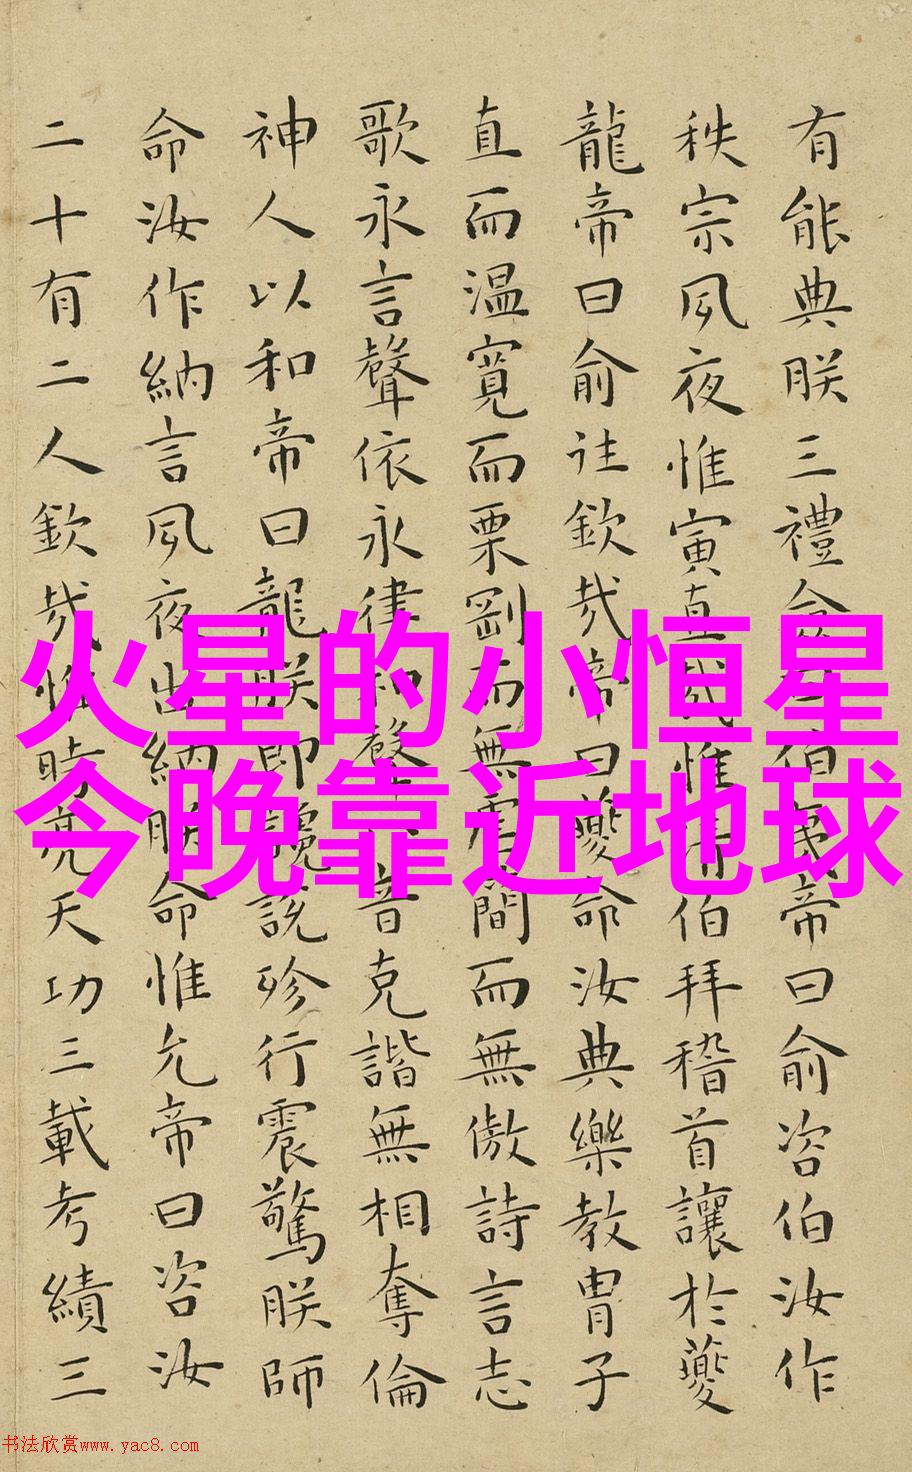 有能典朕三禮僉曰伯夷帝曰俞咨伯汝作
秩宗夙夜惟寅直哉惟清伯拜稽首讓於夔
龍帝曰俞往欽哉帝曰夔命汝典樂教胄子
直而温寬而栗剛而無虐簡而無傲詩言志
歌永言聲依永律和聲八音克諧無相奪倫
神人以和帝曰龍朕即讒說殄行震驚朕師
命汝作納言夙夜出納朕命惟允帝曰咨汝
二十有二人欽哉惟時亮天功三載考績三
火星的小恒星
今晚靠近地球
书法欣赏www.yac8.com